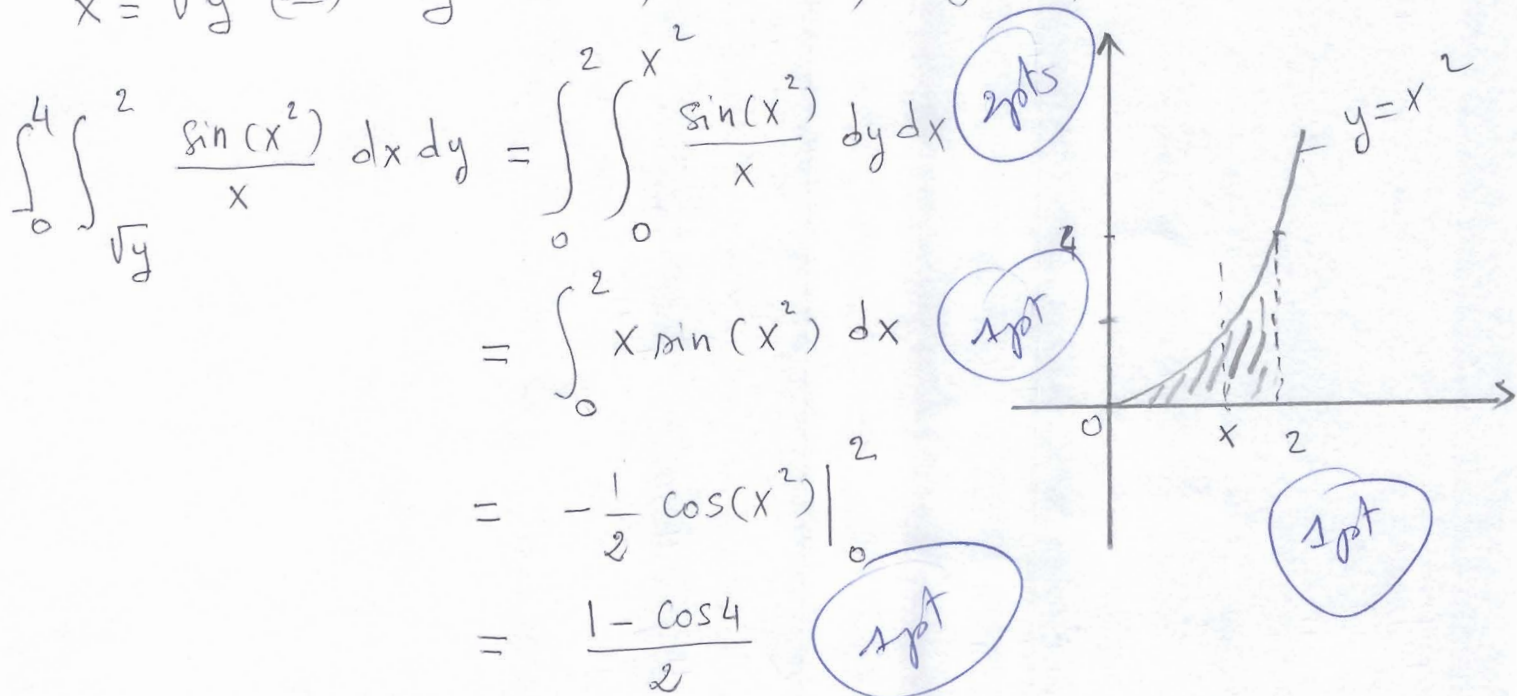 x = √y
∫₀⁴ ∫_{√y}² sin(x²)/x dx dy = ∫₀² ∫₀^{x²} sin(x²)/x dy dx 2pts
= ∫₀² x sin(x²) dx 1pt
= -1/2 cos(x²)|₀²
= (1 - cos4)/2 1pt
y = x²
4
0 x 2
1pt